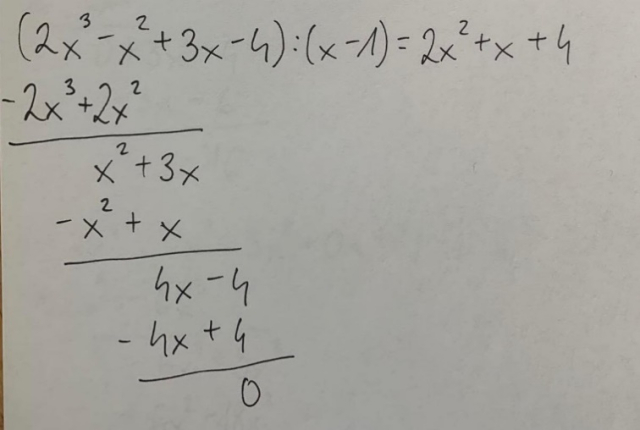 (2x³ - x² + 3x - 4) : (x - 1) = 2x² + x + 4
- 2x³ + 2x²
x² + 3x
- x² + x
4x - 4
- 4x + 4
0